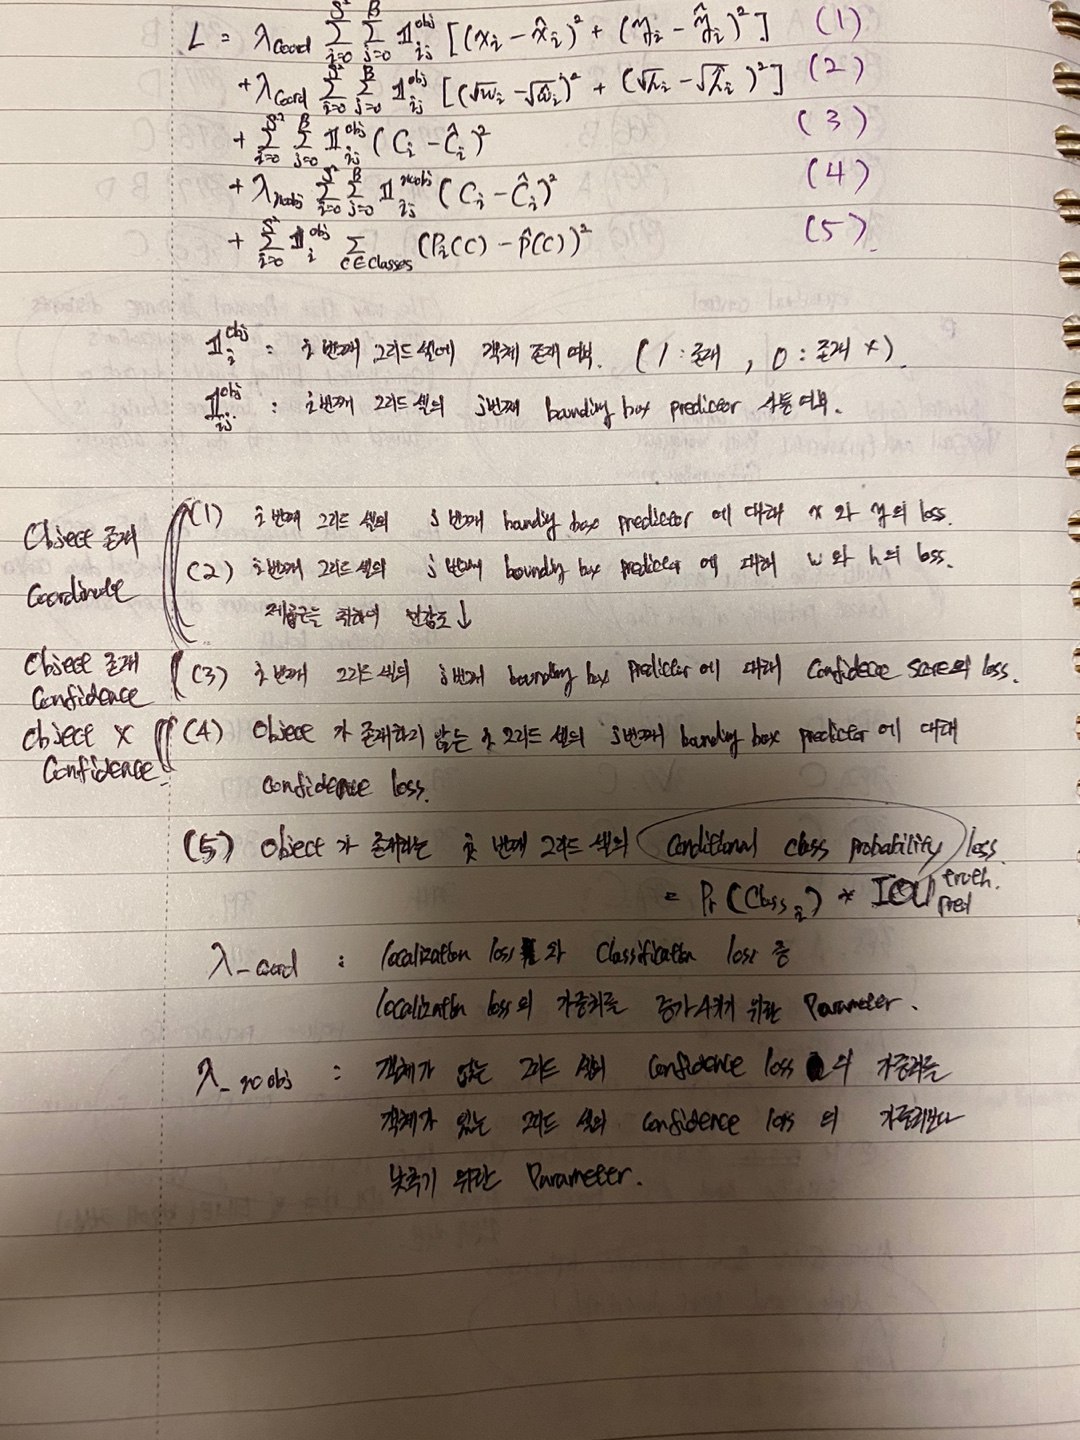 L = λcoord Σ(i=0, S²) Σ(j=0, B) 𝟙ij^obj [(xi - x̂i)² + (yi - ŷi)²] (1)
+ λcoord Σ(i=0, S²) Σ(j=0, B) 𝟙ij^obj [(√wi - √ŵi)² + (√hi - √ĥi)²] (2)
+ Σ(i=0, S²) Σ(j=0, B) 𝟙ij^obj (Ci - Ĉi)² (3)
+ λnobj Σ(i=0, S²) Σ(j=0, B) 𝟙ij^noobj (Ci - Ĉi)² (4)
+ Σ(i=0, S²) 𝟙i^obj Σ(C∈Classes) (Pi(C) - p̂(C))² (5)
𝟙i^obj : i 번째 그리드 셀에 객체 존재 여부. (1 : 존재 , 0 : 존재 x).
𝟙ij^obj : i번째 그리드 셀의 j번째 bounding box predictor 사용 여부.
Object 존재
Coordinate
(1) i 번째 그리드 셀의 j 번째 bounding box predictor 에 대해 x 와 y의 loss.
(2) i 번째 그리드 셀의 j 번째 bounding box predictor 에 대해 w 와 h의 loss.
제곱근을 취하여 민감도 ↓
Object 존재
Confidence
(3) i 번째 그리드 셀의 j 번째 bounding box predictor 에 대해 Confidece score의 loss.
Object X
Confidence
(4) Object 가 존재하지 않는 i 그리드 셀의 j번째 bounding box predictor 에 대해
Confidence loss.
(5) Object 가 존재하는 i 번째 그리드 셀의 Conditional class probability loss.
= Pr (Class i) * IOU truth. pred
λ_coord : localization loss 와 Classification loss 중
localization loss의 가중치를 증가시키기 위한 Parameter.
λ_noobj : 객체가 없는 그리드 셀의 Confidence loss 의 가중치를
객체가 있는 그리드 셀의 Confidence loss 의 가중치보다
낮추기 위한 Parameter.